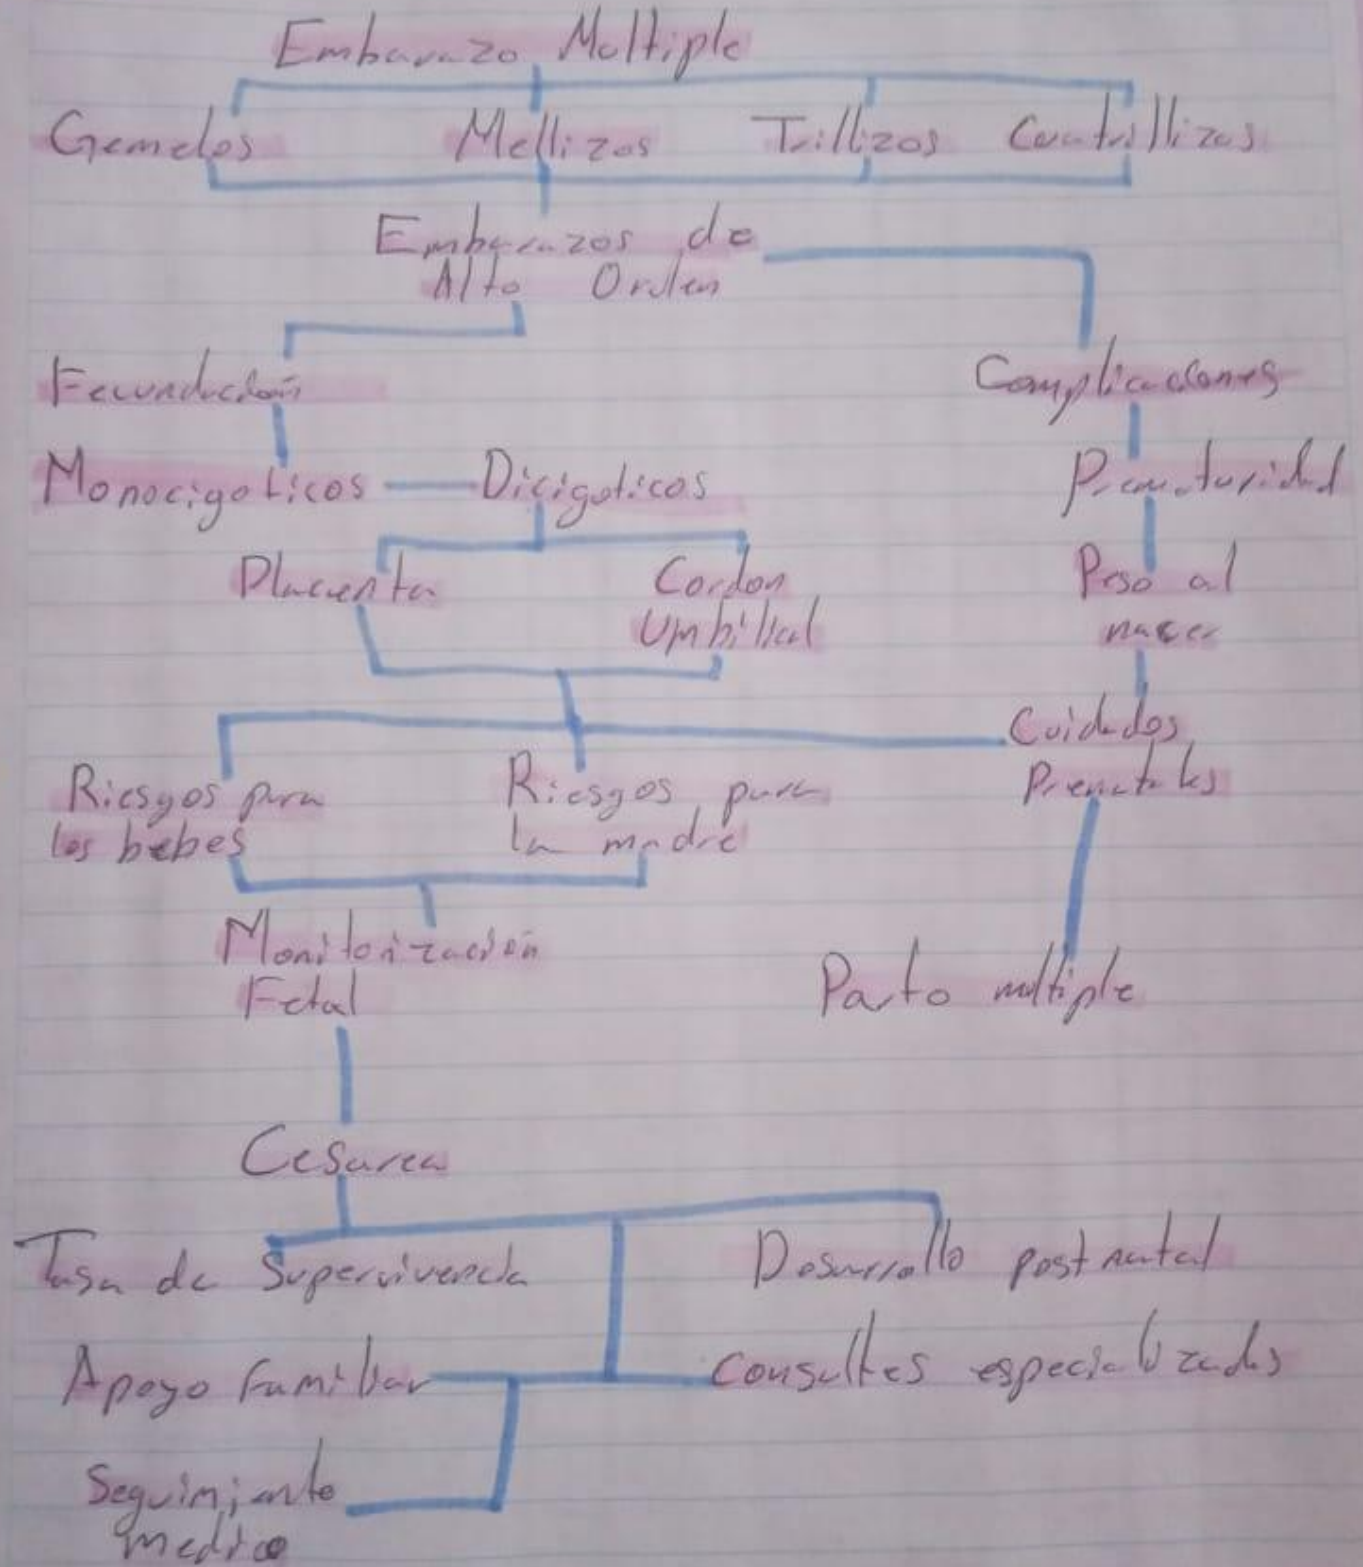 Embarazo Multiple
Gemelos Mellizos Trillizos Cuatrillizos
Embarazos de
Alto Orden
Fecundación Complicaciones
Monocigoticos Dicigoticos Prematuridad
Placenta Cordon Peso al
Umbilical nacer
Cuidados
Riesgos para Riesgos para Prenatales
los bebes la madre
Monitorización
Fetal Parto multiple
Cesarea
Tasa de Supervivencia Desarrollo postnatal
Apoyo Familiar Consultas especializadas
Seguimiento
medico